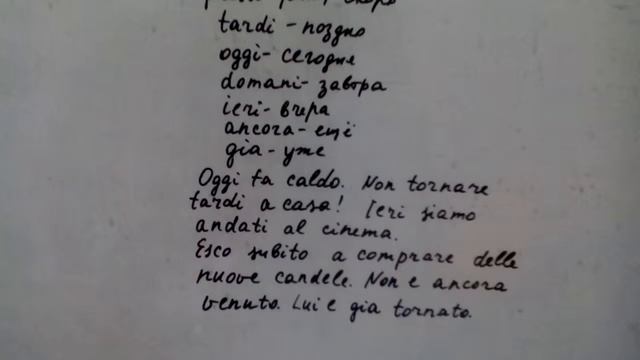 tardi - поздно
oggi - сегодня
domani - завтра
ieri - вчера
ancora - ещё
già - уже
Oggi fa caldo. Non tornare
tardi a casa! Ieri siamo
andati al cinema.
Esco subito a comprare delle
nuove candele. Non e ancora
venuto. Lui e già tornato.